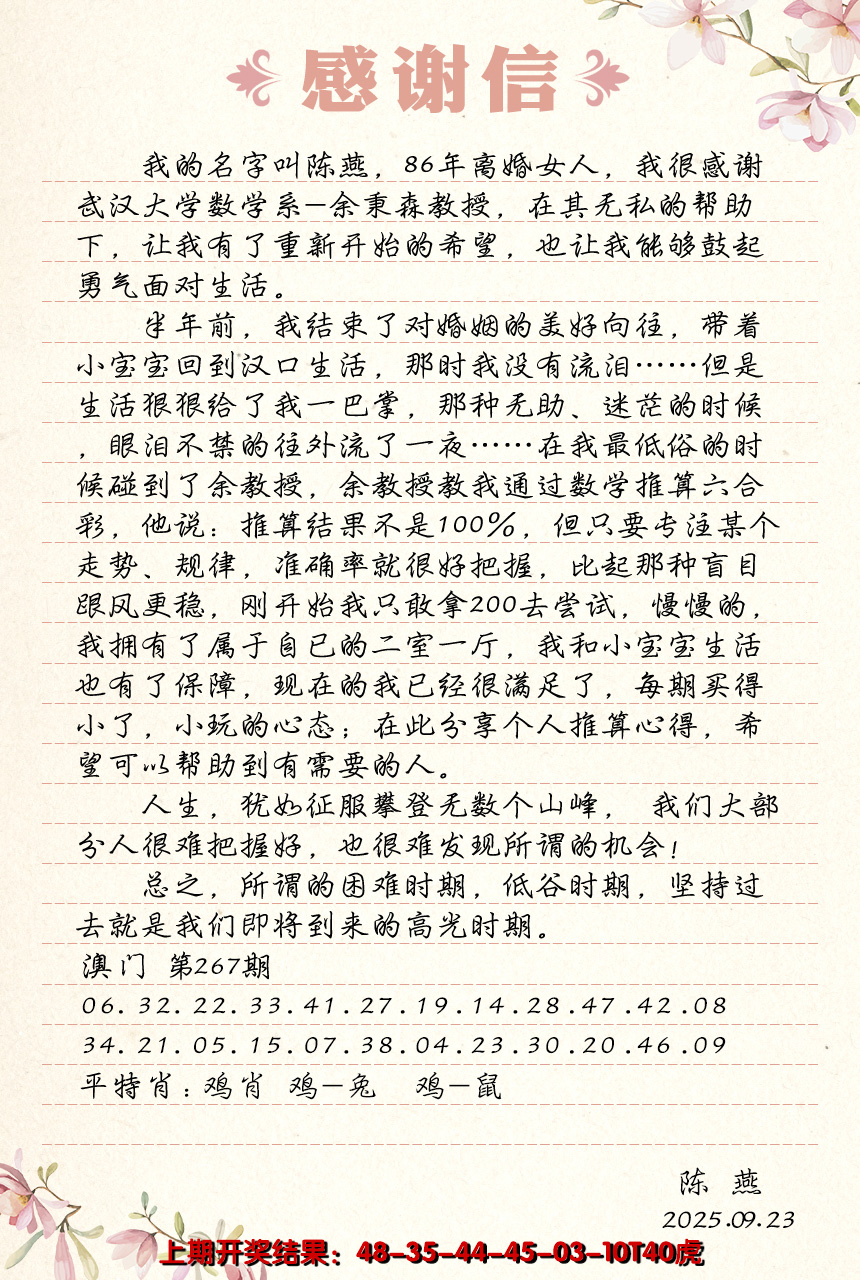 感谢信
我的名字叫陈燕，86年离婚女人，我很感谢
武汉大学数学系—余秉森教授，在其无私的帮助
下，让我有了重新开始的希望，也让我能够鼓起
勇气面对生活。
半年前，我结束了对婚姻的美好向往，带着
小宝宝回到汉口生活，那时我没有流泪……但是
生活狠狠给了我一巴掌，那种无助、迷茫的时候
，眼泪不禁的往外流了一夜……在我最低俗的时
候碰到了余教授，余教授教我通过数学推算六合
彩，他说：推算结果不是100%，但只要专注某个
走势、规律，准确率就很好把握，比起那种盲目
跟风更稳，刚开始我只敢拿200去尝试，慢慢的，
我拥有了属于自已的二室一厅，我和小宝宝生活
也有了保障，现在的我已经很满足了，每期买得
小了，小玩的心态；在此分享个人推算心得，希
望可以帮助到有需要的人。
人生，犹如征服攀登无数个山峰， 我们大部
分人很难把握好，也很难发现所谓的机会！
总之，所谓的困难时期，低谷时期，坚持过
去就是我们即将到来的高光时期。
澳门 第267期
06.32.22.33.41.27.19.14.28.47.42.08
34.21.05.15.07.38.04.23.30.20.46.09
平特肖：鸡肖 鸡—兔 鸡—鼠
陈 燕
2025.09.23
上期开奖结果：48-35-44-45-03-10T40虎